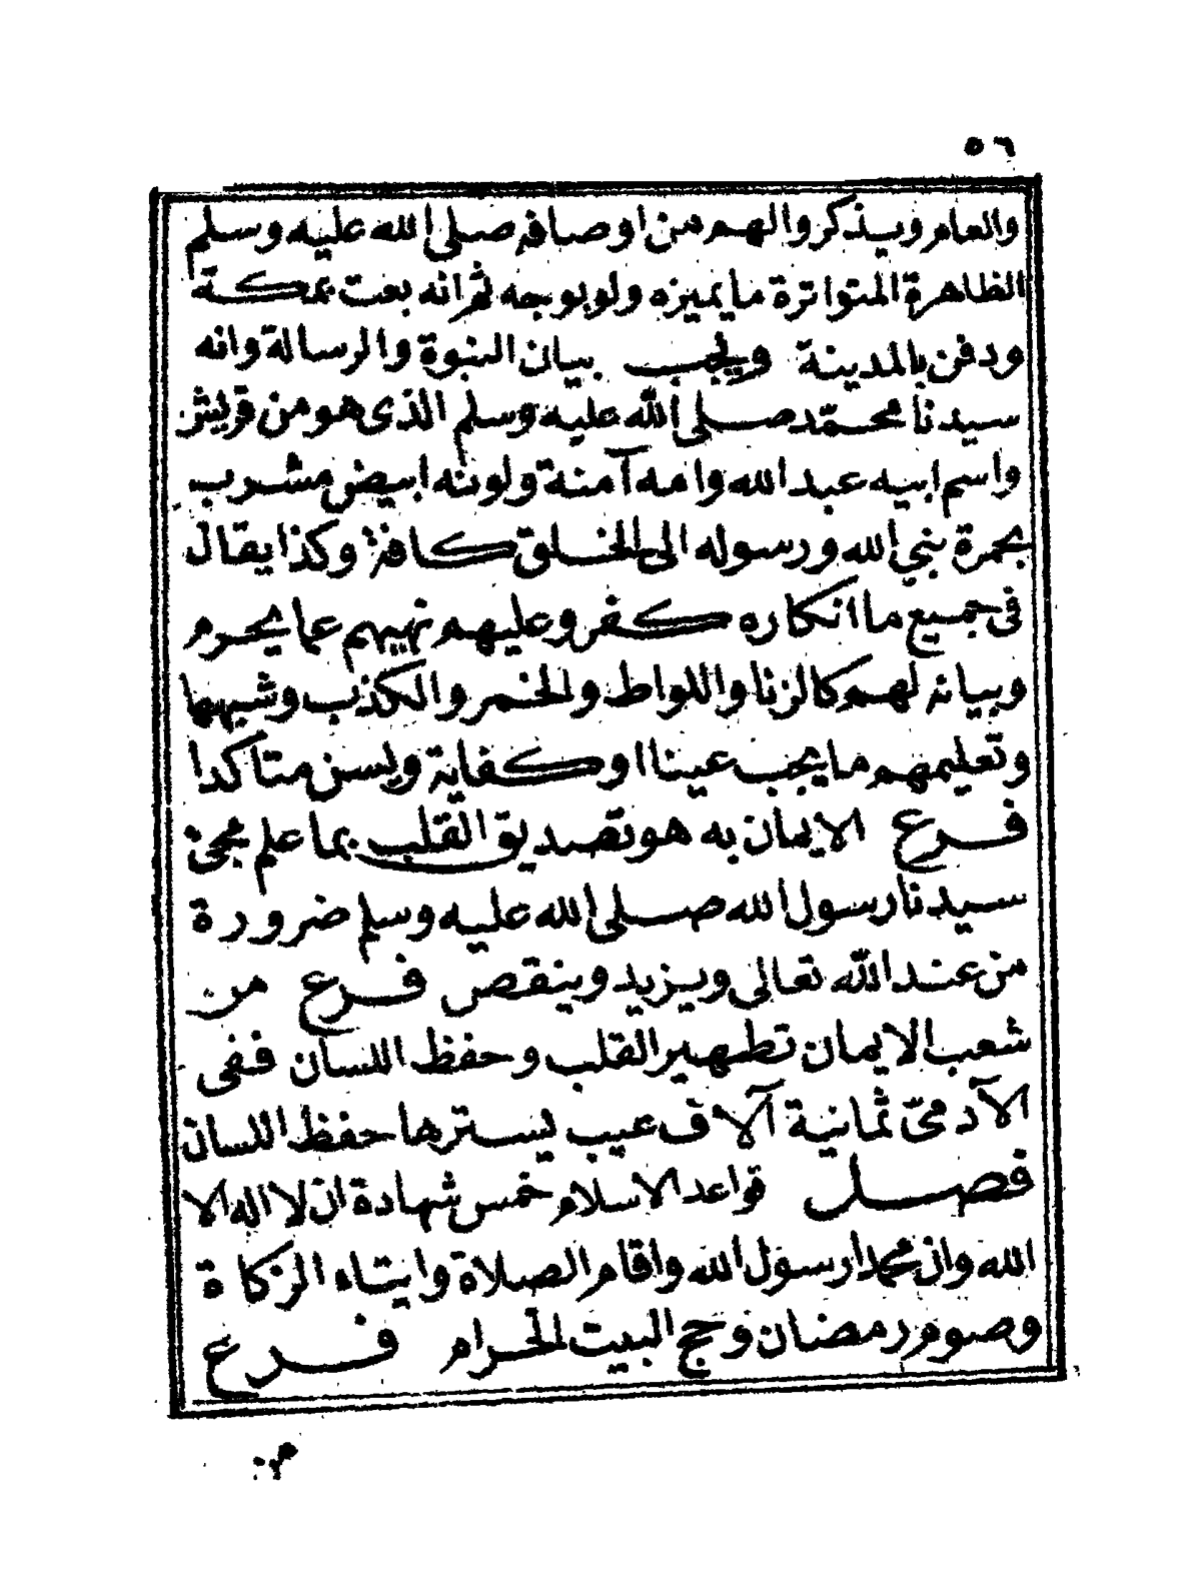 ٥٦
والعام ويذكروا لهم من اوصافه صلى الله عليه وسلم
الظاهرة المتواترة ما يميزه ولو بوجه ثم انه بعث بمكة
ودفن بالمدينة ويجب بيان النبوة والرسالة وانه
سيدنا محمّد صلى الله عليه وسلم الذى هو من قريش
واسم ابيه عبد الله وامه آمنة ولونه ابيض مشرب
بحمرة نبي الله ورسوله الى الخلق كافة وكذا يقال
فى جميع ما انكاره كفر وعليهم نهيهم عما يحرم
وبيانه لهم كالزنا واللواط والخمر والكذب وشبهها
وتعليمهم ما يجب عينا او كفاية ويسن متاكدا
فرع الايمان به هو تصديق القلب بما علم مجئ
سيدنا رسول الله صلى الله عليه وسلم ضرورة
من عند الله تعالى ويزيد وينقص فرع من
شعب الايمان تطهير القلب وحفظ اللسان ففى
الآدمىّ ثمانية آلاف عيب يسترها حفظ اللسان
فصل قواعد الاسلام خمس شهادة ان لا اله الا
الله وان محمدا رسول الله واقام الصلاة وايتاء الزكاة
وصوم رمضان وحج البيت الحرام فرع
من